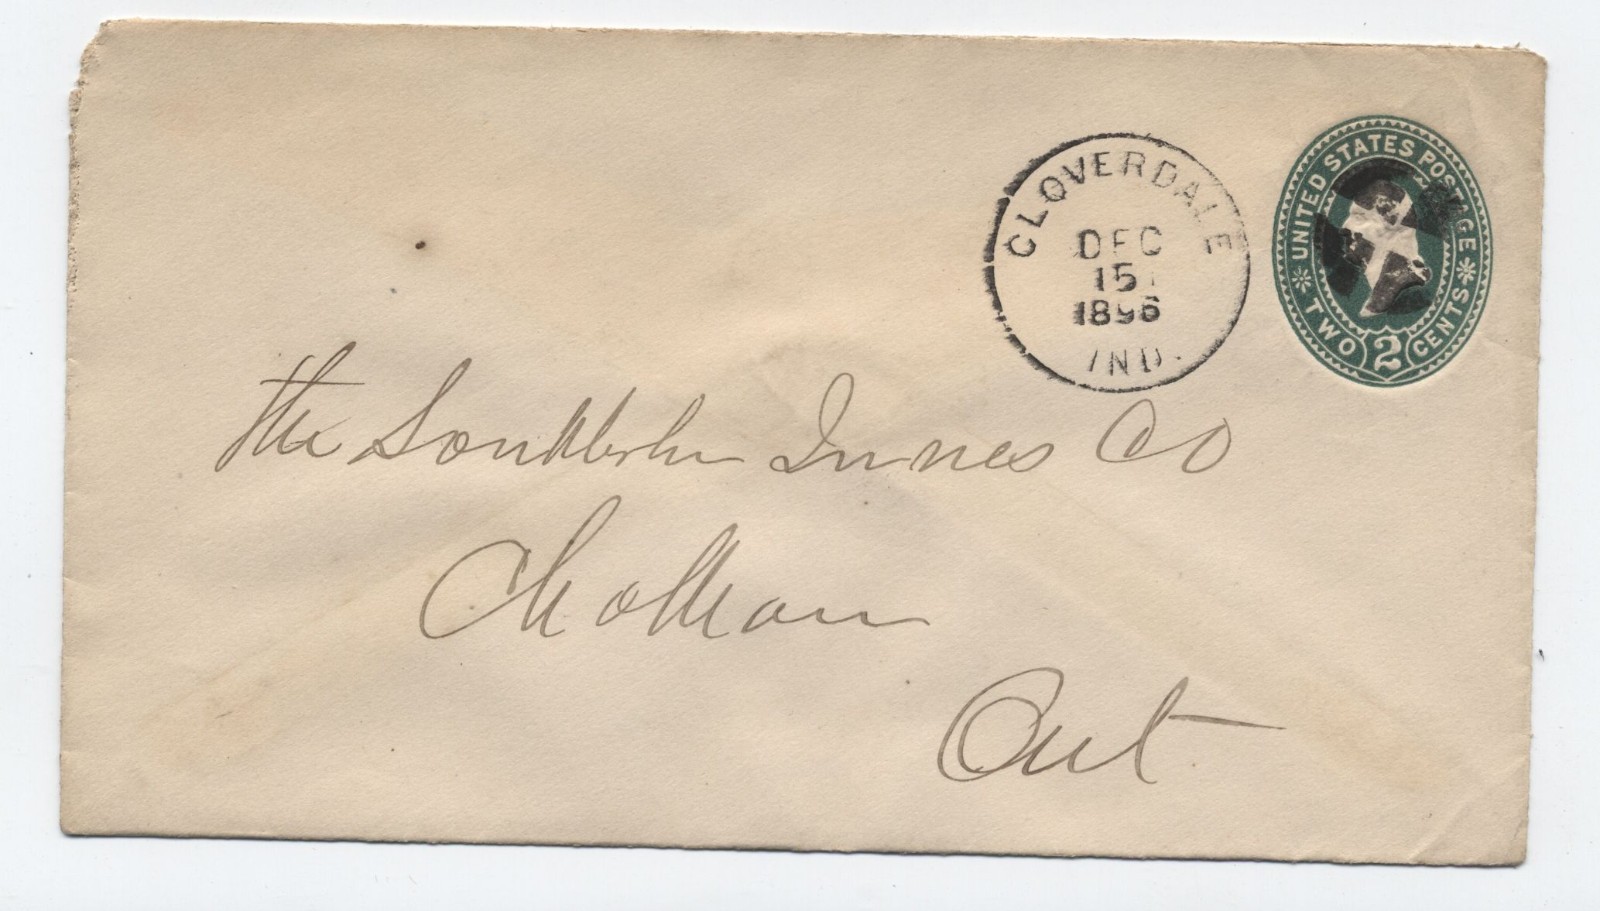 CLOVERDALE
DEC
15
1896
IND.
UNITED STATES POSTAGE
TWO 2 CENTS
The Innes Co
Chatham
Ont